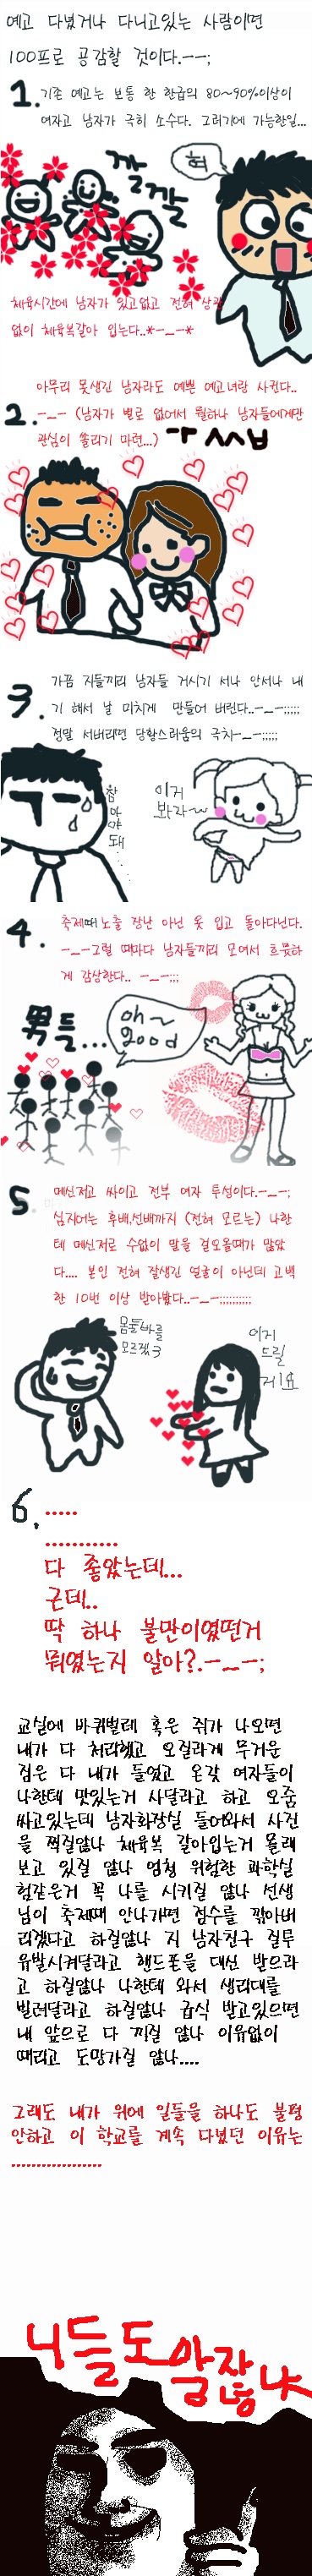 예고 다녔거나 다니고있는 사람이면
100프로 공감할 것이다.--;
1. 기존 예고는 보통 한 학급의 80~90%이상이
여자고 남자가 극히 소수다. 그러기에 가능한일...
깔깔
헉
체육시간에 남자가 있고없고 전혀 상관
없이 체육복갈아 입는다..*-_-*
2. 아무리 못생긴 남자라도 예쁜 예고녀랑 사귄다..
-_- (남자가 별로 없어서 뭘하나 남자들에게만
관심이 쏠리기 마련...)
3. 가끔 지들끼리 남자들 거시기 서나 안서나 내
기 해서 날 미치게 만들어 버린다..-_-;;;;;
정말 서버리면 당황스러움의 극치-_-;;;;;
참아야돼....
이거
봐라~
4. 축제때 노출 장난 아닌 옷 입고 돌아다닌다.
-_-그럴 때마다 남자들끼리 모여서 흐뭇하
게 감상한다.. -_-;;;
男들...
oh~
good
5. 메신저고 싸이고 전부 여자 투성이다.-_-;
심지어는 후배,선배까지 (전혀 모르는) 나한
테 메신저로 수없이 말을 걸오올때가 많았
다.... 본인 전혀 잘생긴 얼굴이 아닌데 고백
한 10번 이상 받아봤다..-_-;;;;;;;;;;
몸둘바를
모르겠3
이거
드릴
게요
6. .....
............
다 좋았는데...
근데..
딱 하나 불만이였떤거
뭐였는지 알아?.-_-;
교실에 바퀴벌레 혹은 쥐가 나오면
내가 다 처리했고 오질라게 무거운
짐은 다 내가 들었고 온갖 여자들이
나한테 맛있는거 사달라고 하고 오줌
싸고있는데 남자화장실 들어와서 사진
을 찍질않나 체육복 갈아입는거 몰래
보고 있질 않나 엄청 위험한 과학실
험같은거 꼭 나를 시키질 않나 선생
님이 축제때 안나가면 점수를 깎아버
리겠다고 하질않나 지 남자친구 질투
유발시켜달라고 핸드폰을 대신 받으라
고 하질않나 나한테 와서 생리대를
빌려달라고 하질않나 급식 받고있으면
내 앞으로 다 끼질 않나 이유없이
때리고 도망가질 않나....
그래도 내가 위에 일들을 하나도 불평
안하고 이 학교를 계속 다녔던 이유는
..................
니들도 알잖냐